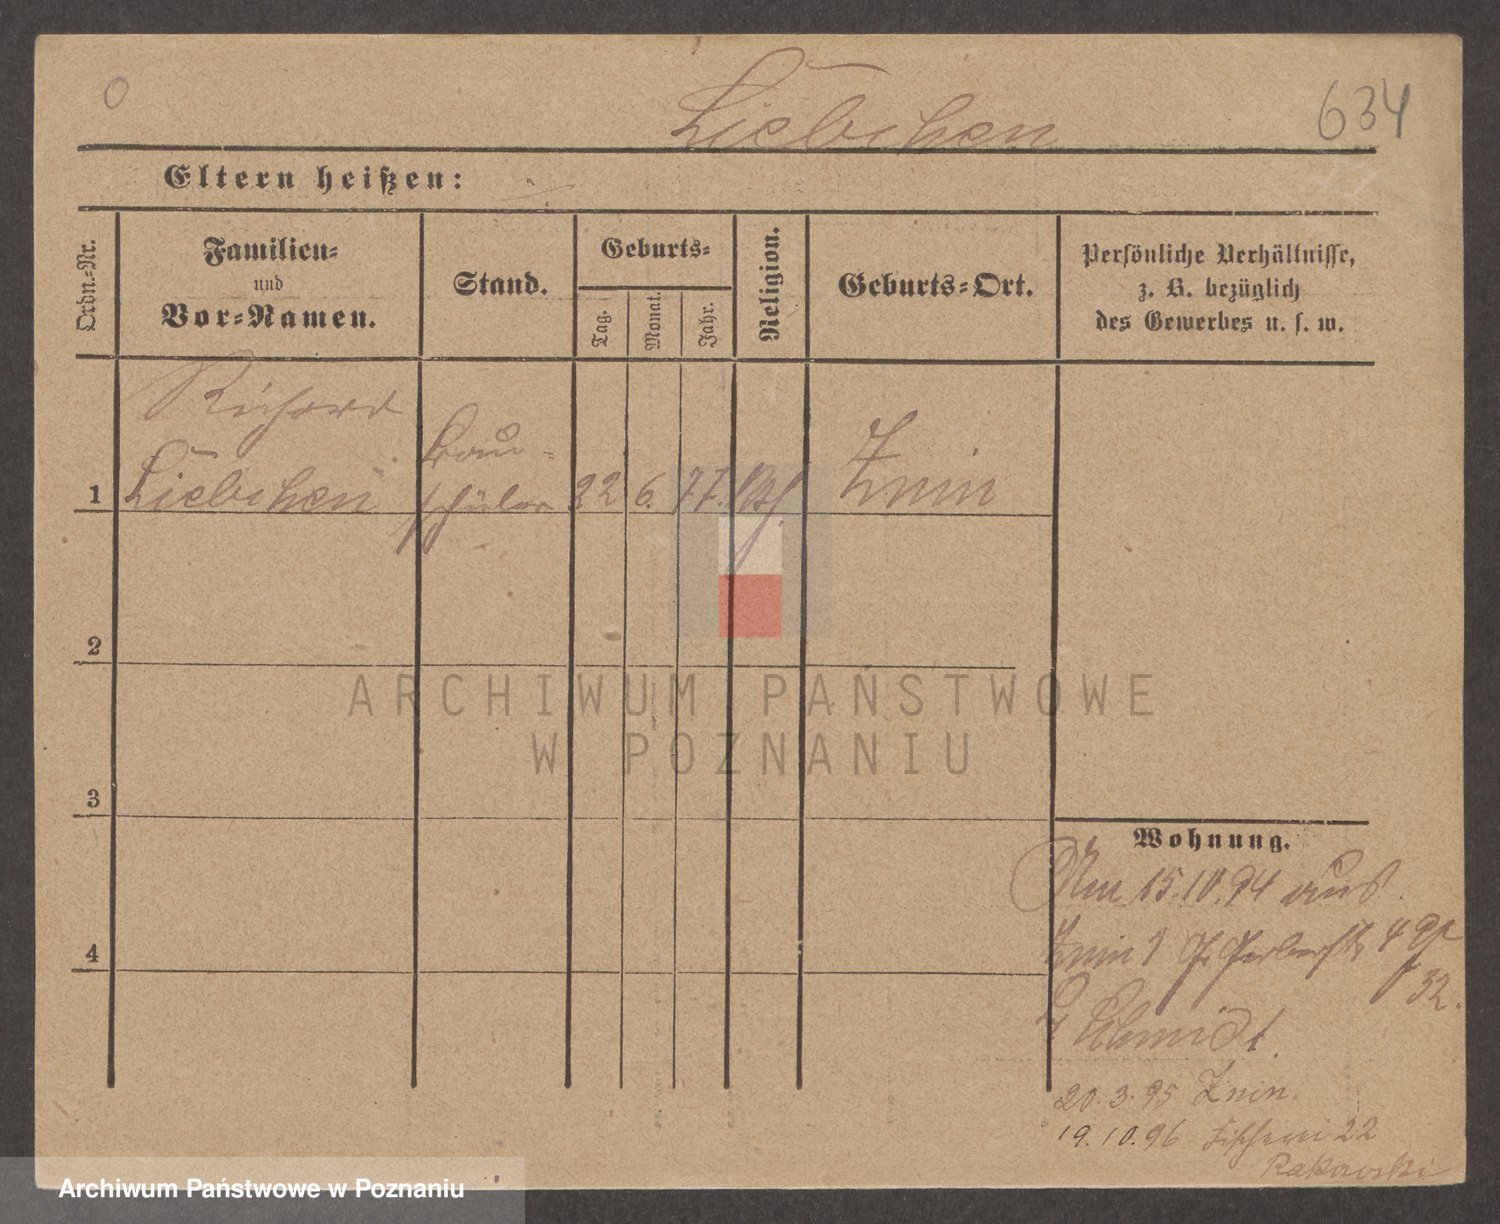 0
Liebchen
634
Eltern heißen:
Ordn.-Nr.
Familien-
und
Vor-Namen.
Stand.
Geburts-
Tag.
Monat.
Jahr.
Religion.
Geburts-Ort.
Persönliche Verhältnisse,
z. B. bezüglich
des Gewerbes u. s. w.
Richard
1 Liebchen
Bau-
schüler
22 6. 77.
Znin
2
ARCHIWUM PAŃSTWOWE
W POZNANIU
3
Wohnung.
15.10.94 aus
Znin
4
32.
Schmidt
20.3.95 Znin.
19.10.96 Fischerei 22
Rakowski
Archiwum Państwowe w Poznaniu